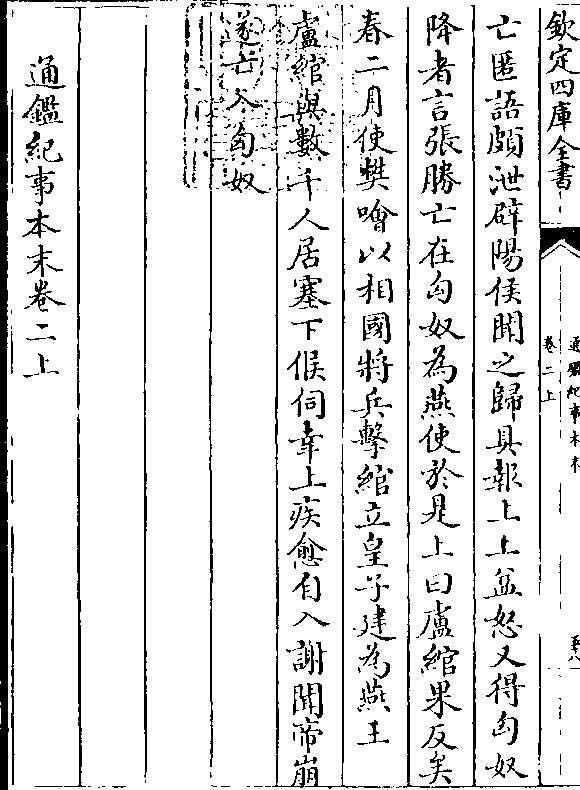 欽定四庫全書
通鑑紀事本末
卷二上
亡匿語頗泄辟陽侯聞之歸具報上上益怒又得匈奴
降者言張勝亡在匈奴為燕使於是上曰盧綰果反矣
春二月使樊噲以相國將兵擊綰立皇子建為燕王
盧綰與數千人居塞下候伺幸上疾愈自入謝聞帝崩
遂亡入匈奴
通鑑紀事本末卷二上